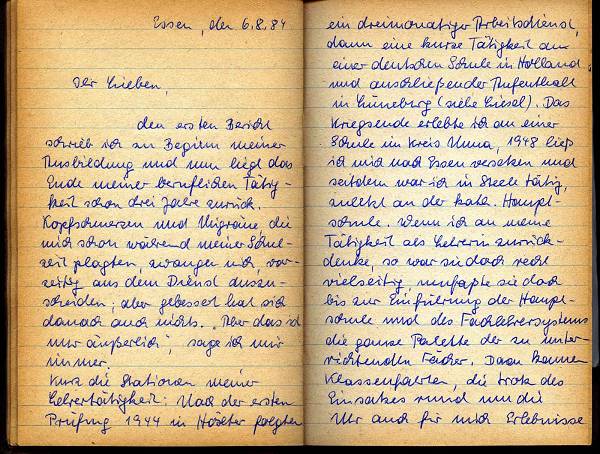 Essen, den 6.8.84
Ihr Lieben,
den ersten Bericht
schrieb ich zu Beginn meiner
Ausbildung und nun liegt das
Ende meiner beruflichen Tätig-
keit schon drei Jahre zurück.
Kopfschmerzen und Migräne die
mich schon während meiner Schul-
zeit plagten, zwangen mich, vor-
zeitig aus dem Dienst auszu-
scheiden; aber gebessert hat sich
danach auch nichts. „Aber das ist
nur äußerlich", sage ich mir
immer.
Kurz die Stationen meiner
Lehrertätigkeit: Nach der ersten
Prüfung 1944 in Höxter folgten
ein dreimonatiger Arbeitsdienst,
dann eine kurze Tätigkeit an
einer deutschen Schule in Holland
und anschließender Aufenthalt
in Lüneburg (siehe Giesel). Das
Kriegsende erlebte ich an einer
Schule im Kreis Unna, 1948 ließ
ich mich nach Essen versetzen und
seitdem war ich in Steele tätig,
zuletzt an der kath. Haupt-
schule. Wenn ich an meine
Tätigkeit als Lehrerin zurück-
denke, so war sie doch recht
vielseitig, umfaßte sie doch
bis zur Einführung der Haupt-
schule und des Fachlehrersystems
die ganze Palette der zu unter-
richtenden Fächer. Dazu kamen
Klassenfahrten, die trotz des
Einsatzes rund um die
Uhr auch für mich Erlebnisse